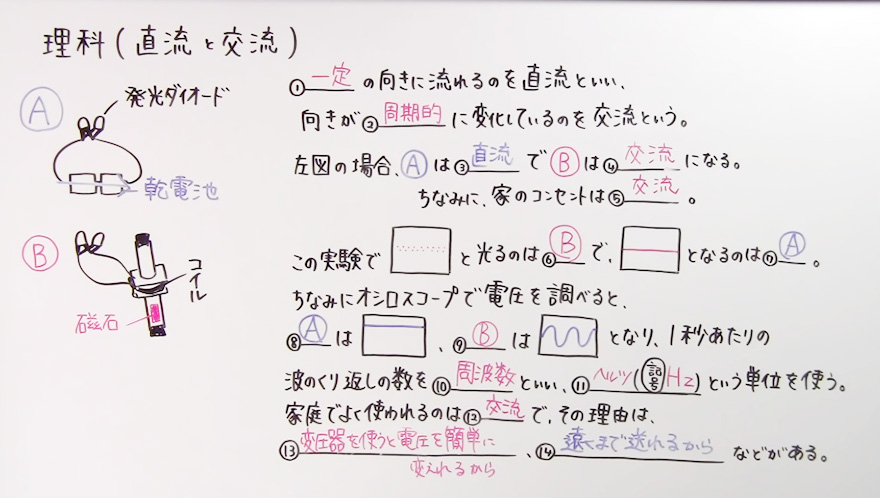 理科(直流と交流)
A
発光ダイオード
乾電池
B
コイル
磁石
①一定の向きに流れるのを直流といい、
向きが②周期的に変化しているのを交流という。
左図の場合、Aは③直流でBは④交流になる。
ちなみに、家のコンセントは⑤交流。
この実験で と光るのは⑥Bで、 となるのは⑦A。
ちなみにオシロスコープで電圧を調べると、
⑧Aは 、⑨Bは となり、1秒あたりの
波のくり返しの数を⑩周波数といい、⑪ヘルツ(記号Hz)という単位を使う。
家庭でよく使われるのは⑫交流で、その理由は、
⑬変圧器を使うと電圧を簡単に
変えれるから
、⑭遠くまで送れるからなどがある。